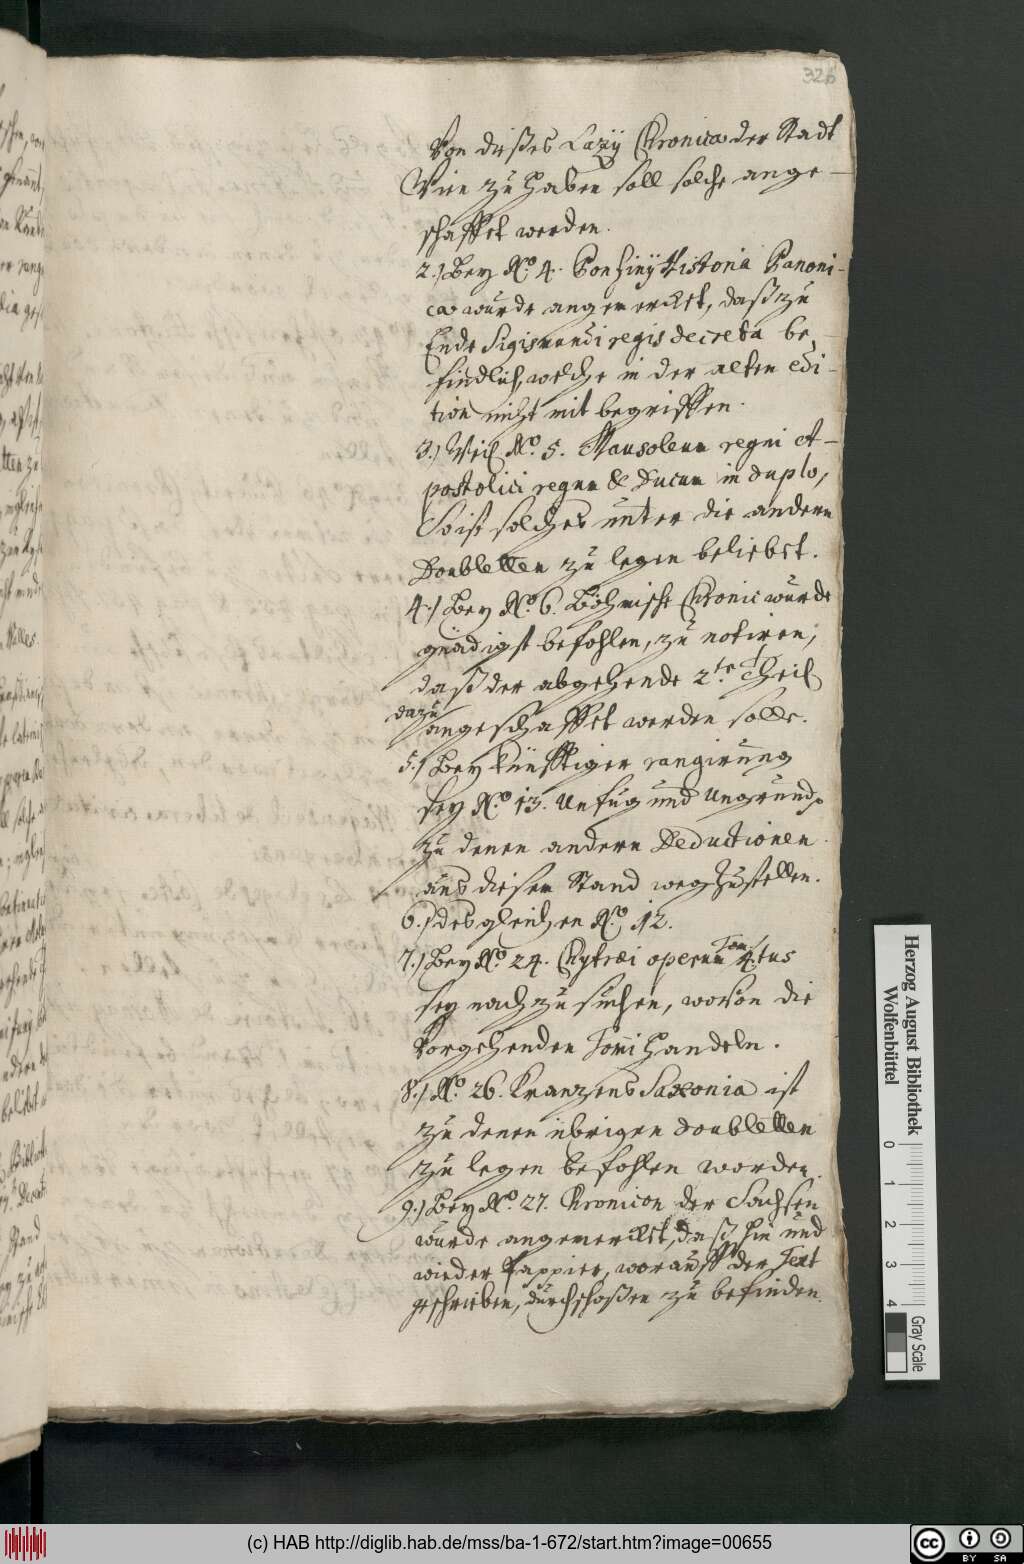 326
Von dießes Lazij Chronica der Stadt
Wien zu haben soll solche ange-
schaffet werden.
2.) Bey No. 4. Bonfinij Historia Panoni-
ca wurde angemercket, daß zu
Ende Sigismundi regis decreta be-
findlich, welche in der alten edi-
tion nicht mit begriffen.
3.) Weil No. 5. Mausoleum regni A-
postolici regum & Ducum in duplo,
So ist solches unter die andern
Doubletten zu legen beliebet.
4.) Bey No. 6. Böhmische Chronic wurde
gnädigst befohlen, zu notiren,
daß der abgehende 2te Theil
dazu
angeschaffet werden solle.
5.) Bey künfftiger rangirung
sey No. 13. Unfug und Ungrund
zu denen andern Deductionen
aus diesem Stand weg zustellen.
6.) desgleichen No. 12.
7.) Bey No. 24. Chytræi operum Tom. 4.tus
sey nachzu suchen, wovon die
Vorgehenden Tomi handeln.
8.) No. 26. Kranzens Saxonia ist
zu denen übrigen doubletten
zu legen befohlen worden.
9.) Bey No. 27. Chronicon der Sachsen
wurde angemercket, daß hin und
wieder Pappier, worauff der Text
geschrieben, durchschoßen zu befinden.
Herzog August Bibliothek
Wolfenbüttel
0 1 2 3 4
Gray Scale
(c) HAB http://diglib.hab.de/mss/ba-1-672/start.htm?image=00655
cc BY SA